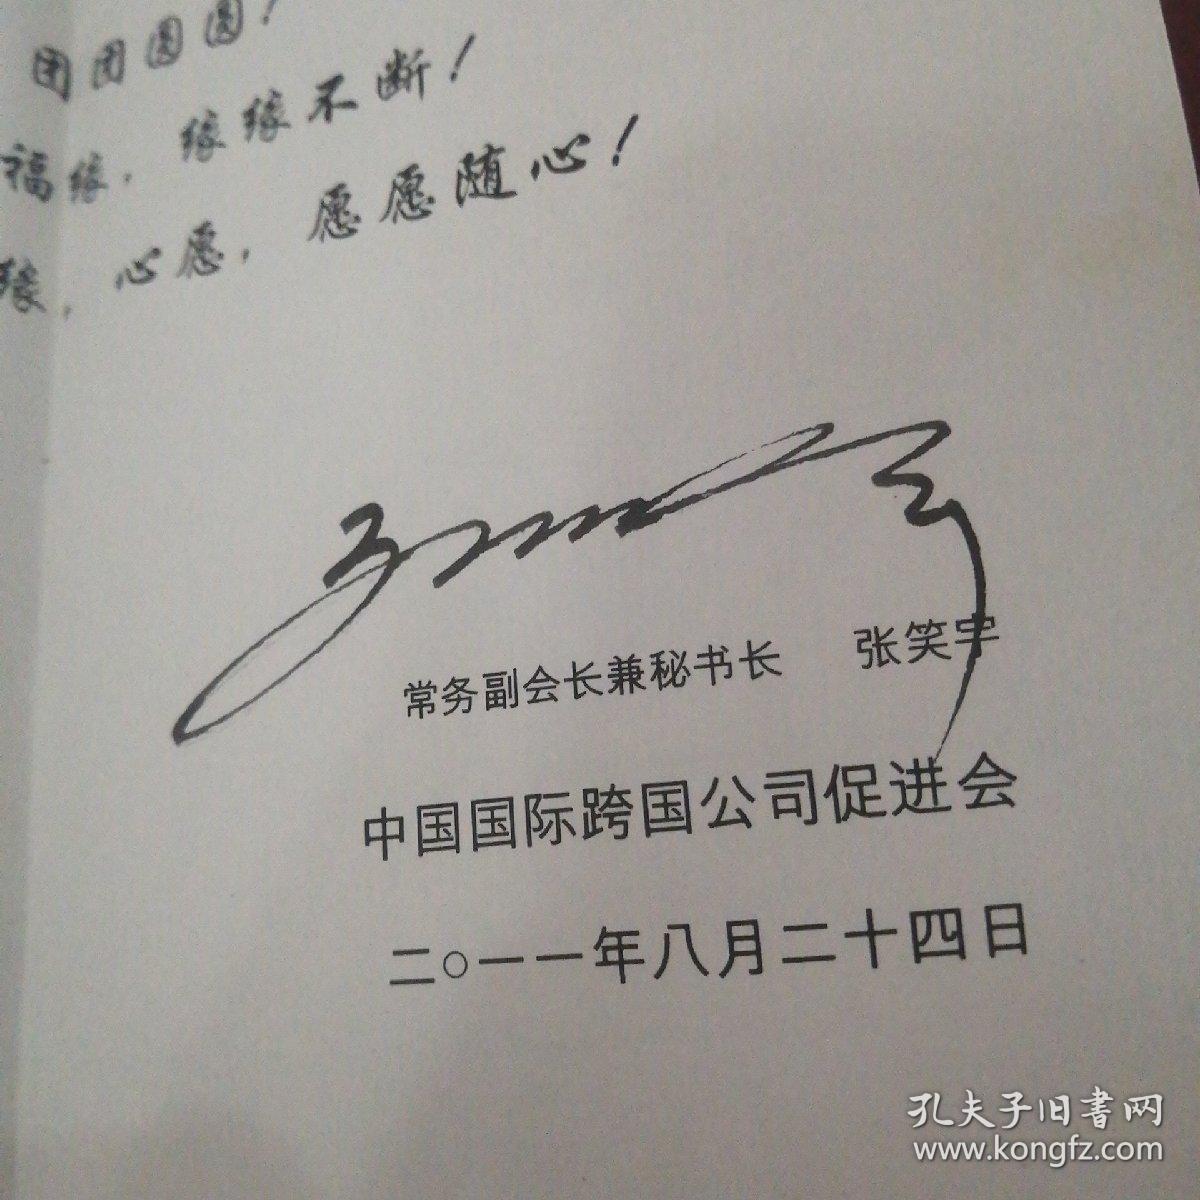 团团圆圆！
福缘，缘缘不断！
缘，心愿，愿愿随心！
常务副会长兼秘书长 张笑宇
中国国际跨国公司促进会
二○一一年八月二十四日
孔夫子旧书网
www.kongfz.com